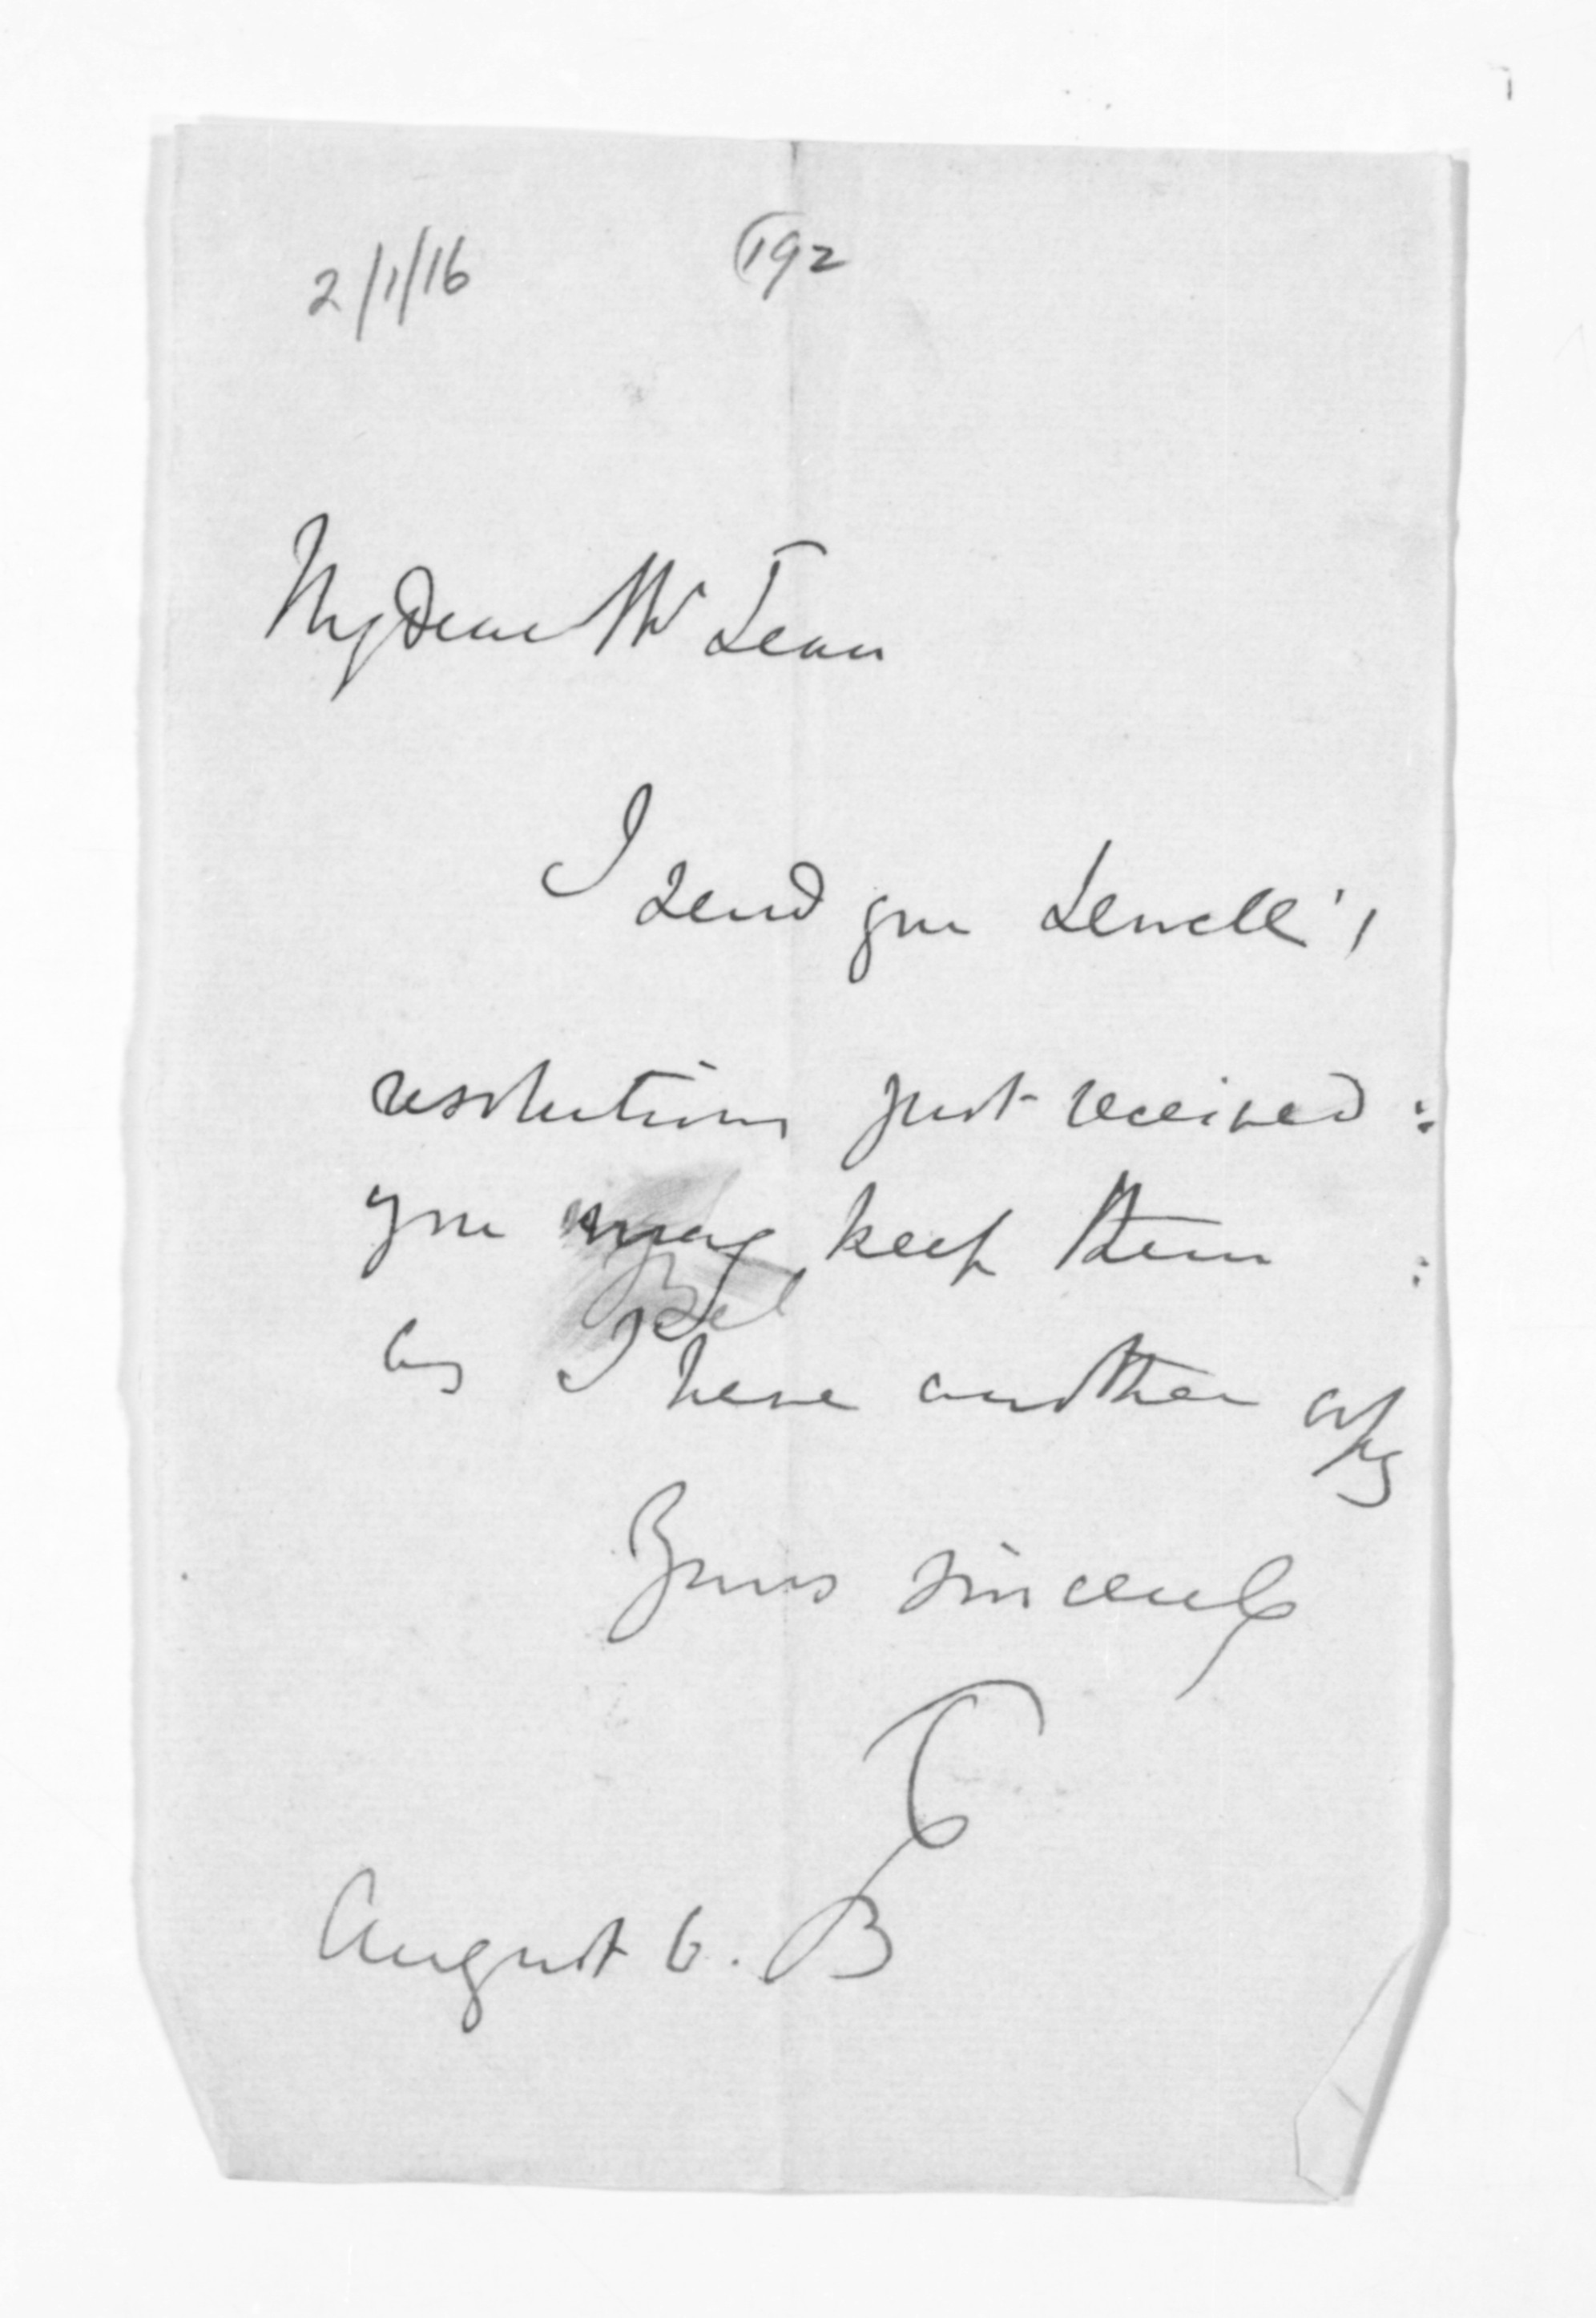 2/1/16 192
My dear McLean
I send you Sewell's
resolutions just received :
you may keep them :
as I have another copy
Yours sincerely
August 6.